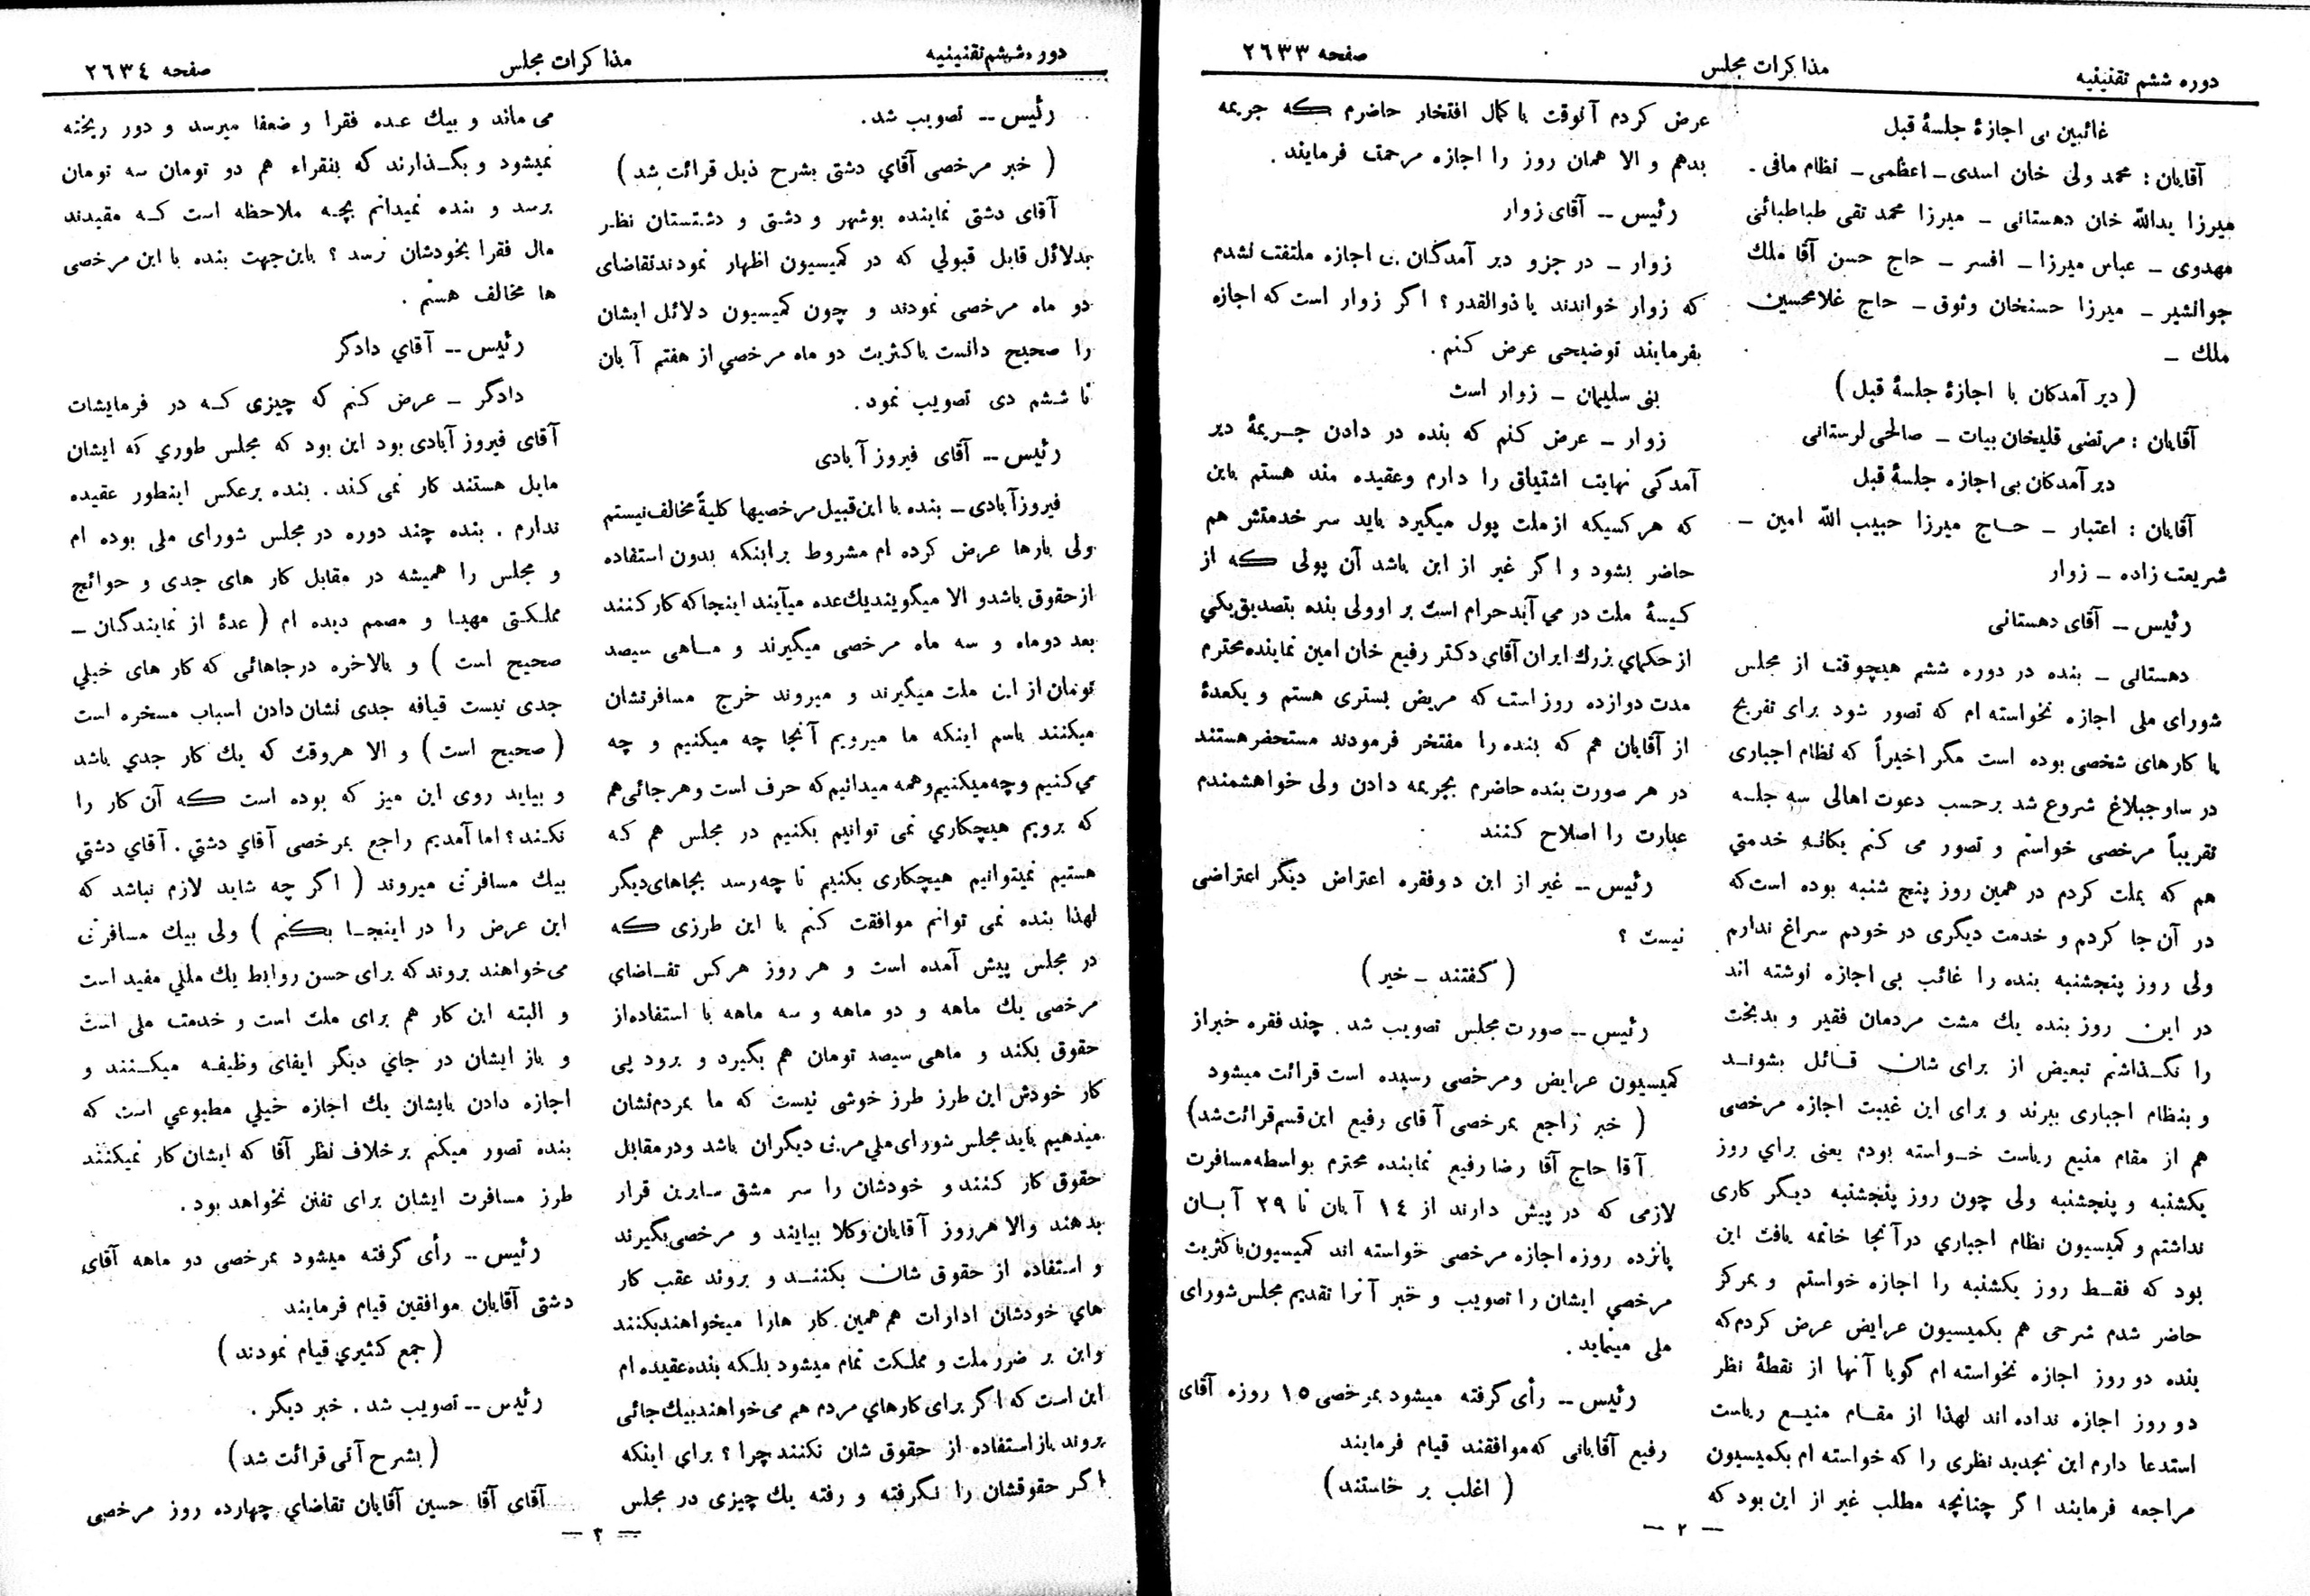 دوره ششم تقنینیه
مذاکرات مجلس
صفحه ۲٦۳۳
غائبین بی اجازۀ جلسۀ قبل
آقایان : محمد ولی خان اسدی ـ اعظمی ـ نظام مافی ـ
میرزا یدالله خان دهستانی ـ میرزا محمد تقی طباطبائی
مهدوی ـ عباس میرزا ـ افسر ـ حاج حسن آقا ملك
جوانشیر ـ میرزا حسنخان وثوق ـ حاج غلامحسین
ملك ـ
( دیر آمدکان با اجازۀ جلسۀ قبل )
آقایان : مرتضی قلیخان بیات ـ صالحی لرستانی
دیر آمدکان بی اجازه جلسۀ قبل
آقایان : اعتبار ـ حاج میرزا حبیب الله امین ـ
شریعت زاده ـ زوار
رئیس ــ آقای دهستانی
دهستانی ـ بنده در دوره ششم هیچوقت از مجلس
شورای ملی اجازه نخواسته ام که تصور شود برای تفریح
یا کارهای شخصی بوده است مگر اخیراً که نظام اجباری
در ساوجبلاغ شروع شد برحسب دعوت اهالی سه جلسه
تقریباً مرخصی خواستم و تصور می کنم یکانه خدمتي
هم که بملت کردم در همین روز پنج شنبه بوده است که
در آن جا کردم و خدمت دیگری در خودم سراغ ندارم
ولی روز پنجشنبه بنده را غائب بی اجازه نوشته اند
در این روز بنده یك مشت مردمان فقیر و بدبخت
را نگذاشتم تبعیض از برای شان قائل بشوند
و بنظام اجباری ببرند و برای این غیبت اجازه مرخصی
هم از مقام منیع ریاست خواسته بودم یعنی براي روز
یکشنبه و پنجشنبه ولی چون روز پنجشنبه دیگر کاری
نداشتم و کمیسیون نظام اجباري درآنجا خاتمه یافت این
بود که فقط روز یکشنبه را اجازه خواستم و بمرکز
حاضر شدم شرحی هم بکمیسیون عرایض عرض کردم که
بنده دو روز اجازه نخواسته ام گویا آنها از نقطۀ نظر
دو روز اجازه نداده اند لهذا از مقام منیع ریاست
استدعا دارم این تجدید نظری را که خواسته ام بکمیسیون
مراجعه فرمایند اگر چنانچه مطلب غیر از این بود که
عرض کردم آنوقت با کمال افتخار حاضرم که جریمه
بدهم و الا همان روز را اجازه مرحمت فرمایند .
رئیس ــ آقای زوار
زوار ـ در جزو دیر آمدگان بی اجازه ملتفت نشدم
که زوار خواندند یا ذوالقدر ؟ اگر زوار است که اجازه
بفرمایند توضیحی عرض کنم .
بنی سلیمان ـ زوار است
زوار ـ عرض کنم که بنده در دادن جریمۀ دیر
آمدگی نهایت اشتیاق را دارم وعقیده مند هستم باین
که هر کسیکه از ملت پول میگیرد باید سر خدمتش هم
حاضر بشود و اگر غیر از این باشد آن پولی که از
کیسۀ ملت در می آید حرام است بر او ولی بنده بتصدیق یکي
از حکمهاي بزرك ایران آقاي دکتر رفیع خان امین نماینده محترم
مدت دوازده روز است که مریض بستری هستم و یکعدۀ
از آقایان هم که بنده را مفتخر فرمودند مستحضر هستند
در هر صورت بنده حاضرم بجریمه دادن ولی خواهشمندم
عبارت را اصلاح کنند
رئیس ــ غیر از این دوفقره اعتراض دیگر اعتراضی
نیست ؟
( گفتند ـ خیر )
رئیس ــ صورت مجلس تصویب شد . چند فقره خبر از
کمیسیون عرایض ومرخصی رسیده است قرائت میشود
( خبر راجع بمرخصی آقای رفیع این قسم قرائت شد )
آقا حاج آقا رضا رفیع نماینده محترم بواسطه مسافرت
لازمی که در پیش دارند از ۱٤ آبان تا ۲۹ آبان
پانزده روزه اجازه مرخصی خواسته اند کمیسیون باکثریت
مرخصي ایشان را تصویب و خبر آنرا تقدیم مجلس شورای
ملی مینماید .
رئیس ــ رأی گرفته میشود بمرخصی ۱۵ روزه آقای
رفیع آقایانی که موافقند قیام فرمایند
( اغلب بر خاستند )
ـ ۲ ـ
دوره ششم تقنینیه
مذاکرات مجلس
صفحه ۲٦۳٤
رئیس ــ تصویب شد .
( خبر مرخصی آقاي دشتی بشرح ذیل قرائت شد )
آقای دشتی نماینده بوشهر و دشتی و دشتستان نظر
بدلائل قابل قبولي که در کمیسیون اظهار نمودند تقاضای
دو ماه مرخصی نمودند و چون کمیسیون دلائل ایشان
را صحیح دانست باکثریت دو ماه مرخصي از هفتم آبان
تا ششم دی تصویب نمود .
رئیس ــ آقای فیروز آبادی
فیروزآبادی ـ بنده با این قبیل مرخصیها کلیةً مخالف نیستم
ولی بارها عرض کرده ام مشروط براینکه بدون استفاده
از حقوق باشد و الا میگویند یك عده میآیند اینجا که کار کنند
بعد دوماه و سه ماه مرخصی میگیرند و ماهی سیصد
تومان از این ملت میگیرند و میروند خرج مسافرتشان
میکنند باسم اینکه ما میرویم آنجا چه میکنیم و چه
می کنیم و چه میکنیم و همه میدانیم که حرف است و هر جائی هم
که برویم هیچکاري نمی توانیم بکنیم در مجلس هم که
هستیم نمیتوانیم هیچکاری بکنیم تا چه رسد بجاهای دیگر
لهذا بنده نمی توانم موافقت کنم با این طرزی که
در مجلس پیش آمده است و هر روز هرکس تقاضاي
مرخصی یك ماهه و دو ماهه و سه ماهه با استفاده از
حقوق بکند و ماهی سیصد تومان هم بگیرد و برود پی
کار خودش این طرز طرز خوشی نیست که ما بمردم نشان
میدهیم باید مجلس شورای ملي مربی دیگران باشد و در مقابل
حقوق کار کنند و خودشان را سر مشق سایرین قرار
بدهند والا هر روز آقایان وکلا بیایند و مرخصی بگیرند
و استفاده از حقوق شان بکنند و بروند عقب کار
هاي خودشان ادارات هم همین کار هارا میخواهند بکنند
واین بر ضرر ملت و مملکت تمام میشود بلکه بنده عقیده ام
این است که اگر برای کارهاي مردم هم می خواهند بیك جائی
بروند باز استفاده از حقوق شان نکنند چرا ؟ براي اینکه
اگر حقوقشان را نگرفته و رفته یك چیزی در مجلس
می ماند و بیك عده فقرا و ضعفا میرسد و دور ریخته
نمیشود و بگذارند که بفقراء هم دو تومان سه تومان
برسد و بنده نمیدانم بچه ملاحظه است که مقیدند
مال فقرا بخودشان نرسد ؟ باین جهت بنده با این مرخصی
ها مخالف هستم .
رئیس ــ آقاي دادگر
دادگر ـ عرض کنم که چیزی که در فرمایشات
آقای فیروز آبادی بود این بود که مجلس طوري که ایشان
مایل هستند کار نمی کند . بنده برعکس اینطور عقیده
ندارم . بنده چند دوره در مجلس شورای ملی بوده ام
و مجلس را همیشه در مقابل کار های جدی و حوائج
مملکتی مهیا و مصمم دیده ام ( عدۀ از نمایندگان ـ
صحیح است ) و بالاخره در جاهائی که کار های خیلي
جدی نیست قیافه جدی نشان دادن اسباب مسخره است
( صحیح است ) و الا هروقت که یك کار جدي باشد
و بیاید روی این میز که بوده است که آن کار را
نکند ؟ اما آمدیم راجع بمرخصی آقاي دشتي . آقاي دشتي
بیك مسافرتی میروند ( اگر چه شاید لازم نباشد که
این عرض را در اینجا بکنم ) ولی بیك مسافرتی
می خواهند بروند که برای حسن روابط یك مللي مفید است
و البته این کار هم برای ملت است و خدمت ملی است
و باز ایشان در جاي دیگر ایفای وظیفه میکنند و
اجازه دادن بایشان یك اجازه خیلي مطبوعي است که
بنده تصور میکنم برخلاف نظر آقا که ایشان کار نمیکنند
طرز مسافرت ایشان برای تفنن نخواهد بود .
رئیس ــ رأی گرفته میشود بمرخصی دو ماهه آقای
دشتی آقایان موافقین قیام فرمایند
( جمع کثیري قیام نمودند )
رئیس ــ تصویب شد . خبر دیگر .
( بشرح آتی قرائت شد )
آقای آقا حسین آقایان تقاضاي چهارده روز مرخصی
ـ ۳ ـ